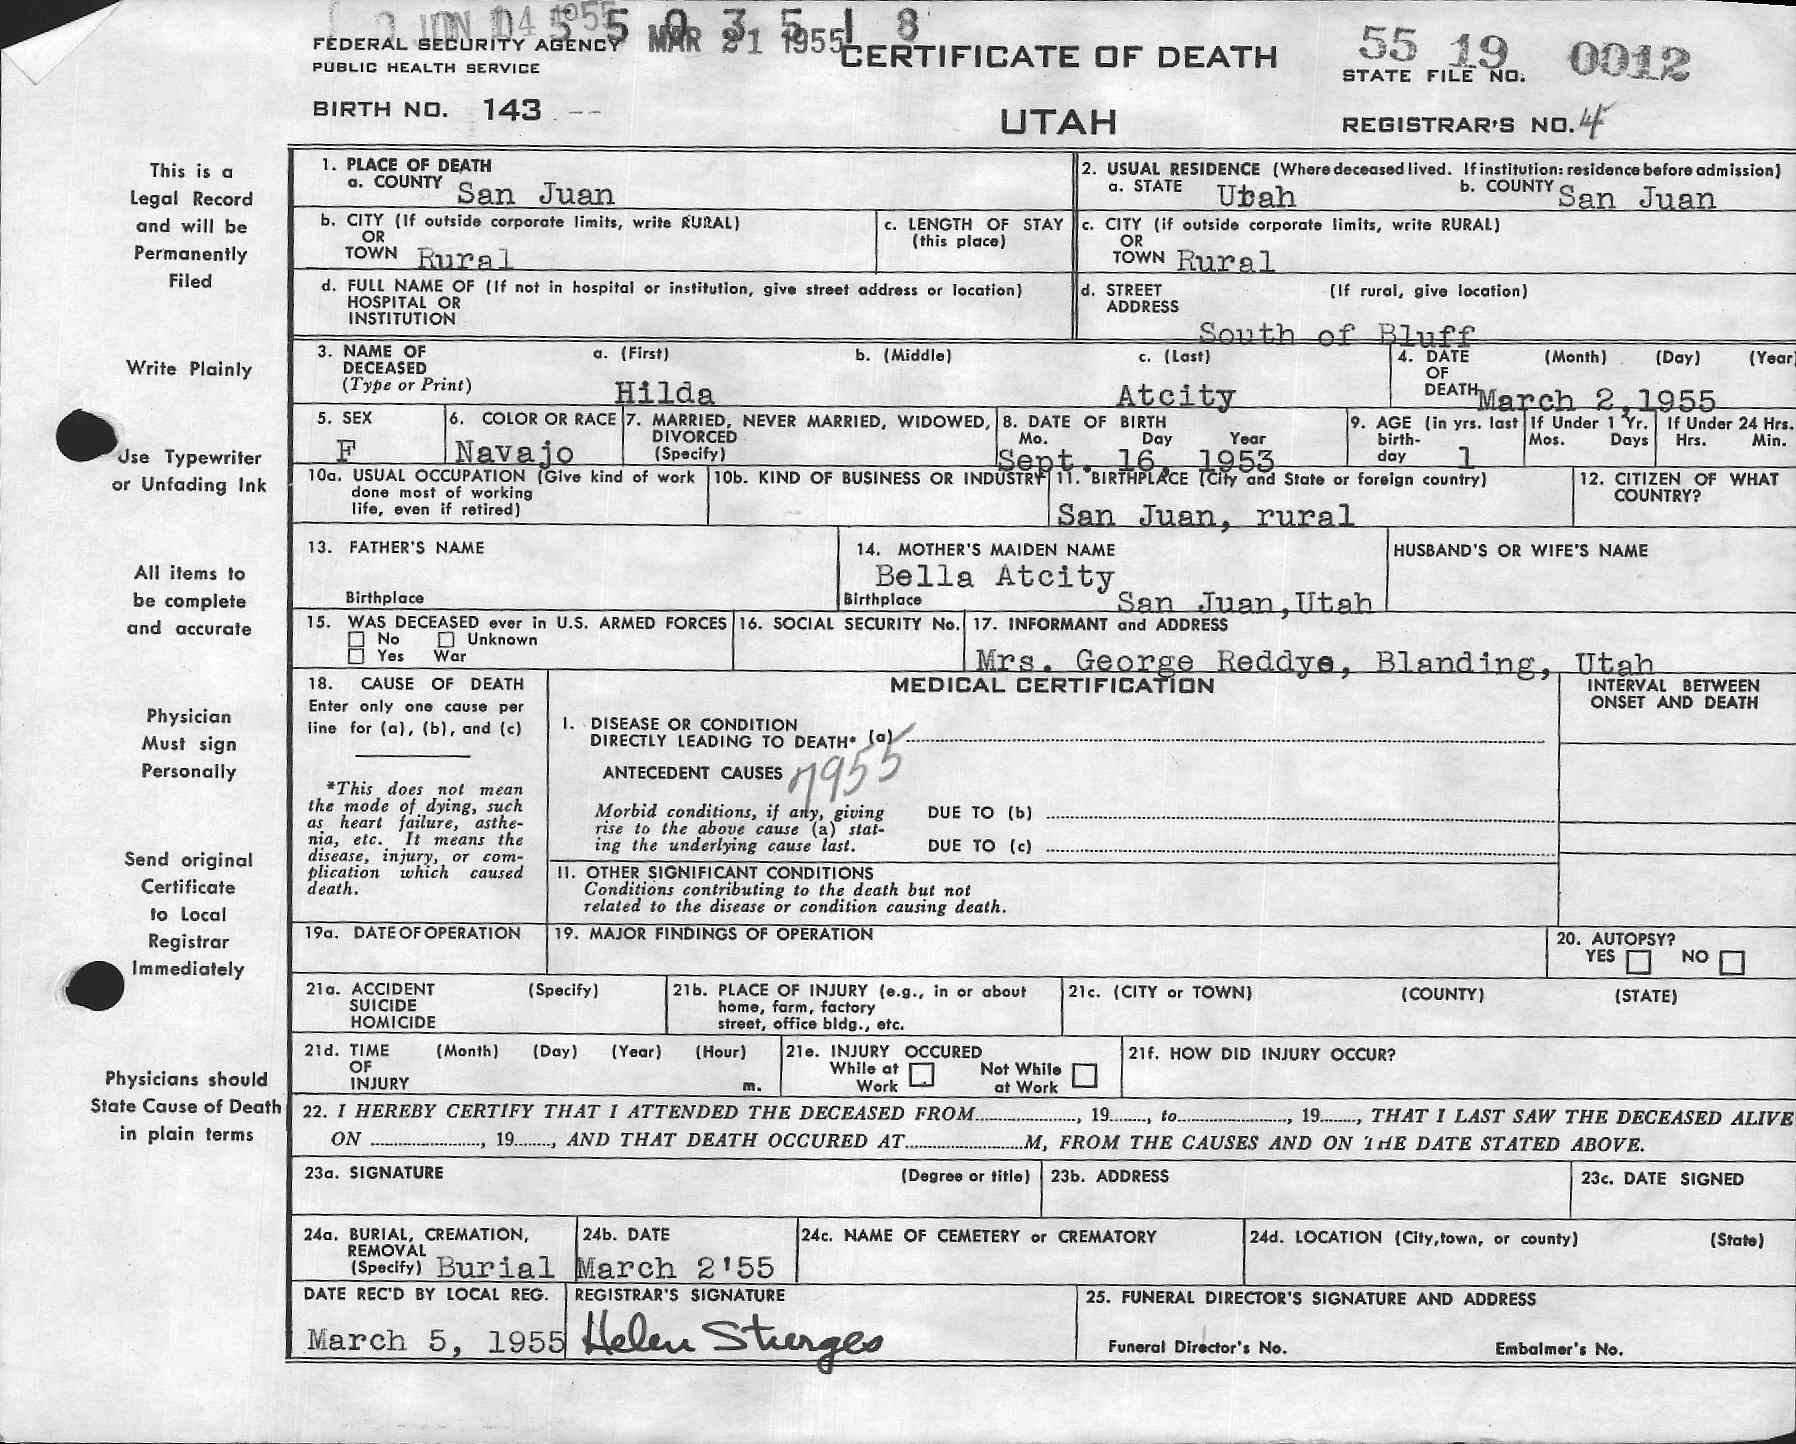 JUN 14 1955
55 0 3 5 1 8
MAR 21 1955
FEDERAL SECURITY AGENCY
PUBLIC HEALTH SERVICE
CERTIFICATE OF DEATH
55 19 0012
STATE FILE NO.
BIRTH NO. 143 --
UTAH
REGISTRAR'S NO. 4
This is a
Legal Record
and will be
Permanently
Filed
Write Plainly
Use Typewriter
or Unfading Ink
All items to
be complete
and accurate
Physician
Must sign
Personally
Send original
Certificate
to Local
Registrar
Immediately
Physicians should
State Cause of Death
in plain terms
1. PLACE OF DEATH
a. COUNTY San Juan
2. USUAL RESIDENCE (Where deceased lived. If institution: residence before admission)
a. STATE Utah b. COUNTY San Juan
b. CITY (If outside corporate limits, write RURAL)
OR
TOWN Rural
c. LENGTH OF STAY
(this place)
c. CITY (if outside corporate limits, write RURAL)
OR
TOWN Rural
d. FULL NAME OF (If not in hospital or institution, give street address or location)
HOSPITAL OR
INSTITUTION
d. STREET (If rural, give location)
ADDRESS
South of Bluff
3. NAME OF a. (First) b. (Middle) c. (Last)
DECEASED
(Type or Print) Hilda Atcity
4. DATE (Month) (Day) (Year
OF
DEATH March 2,1955
5. SEX
F
6. COLOR OR RACE
Navajo
7. MARRIED, NEVER MARRIED, WIDOWED,
DIVORCED
(Specify)
8. DATE OF BIRTH
Mo. Day Year
Sept. 16, 1953
9. AGE (in yrs. last
birth-
day 1
If Under 1 Yr.
Mos. Days
If Under 24 Hrs.
Hrs. Min.
10a. USUAL OCCUPATION (Give kind of work
done most of working
life, even if retired)
10b. KIND OF BUSINESS OR INDUSTRY
11. BIRTHPLACE (City and State or foreign country)
San Juan, rural
12. CITIZEN OF WHAT
COUNTRY?
13. FATHER'S NAME
Birthplace
14. MOTHER'S MAIDEN NAME
Bella Atcity
Birthplace San Juan,Utah
HUSBAND'S OR WIFE'S NAME
15. WAS DECEASED ever in U.S. ARMED FORCES
No Unknown
Yes War
16. SOCIAL SECURITY No.
17. INFORMANT and ADDRESS
Mrs. George Reddye, Blanding, Utah
18. CAUSE OF DEATH
Enter only one cause per
line for (a), (b), and (c)
*This does not mean
the mode of dying, such
as heart failure, asthe-
nia, etc. It means the
disease, injury, or com-
plication which caused
death.
MEDICAL CERTIFICATION
INTERVAL BETWEEN
ONSET AND DEATH
I. DISEASE OR CONDITION
DIRECTLY LEADING TO DEATH* (a)
ANTECEDENT CAUSES 7955
Morbid conditions, if any, giving
rise to the above cause (a) stat-
ing the underlying cause last.
DUE TO (b)
DUE TO (c)
II. OTHER SIGNIFICANT CONDITIONS
Conditions contributing to the death but not
related to the disease or condition causing death.
19a. DATE OF OPERATION
19. MAJOR FINDINGS OF OPERATION
20. AUTOPSY?
YES NO
21a. ACCIDENT (Specify)
SUICIDE
HOMICIDE
21b. PLACE OF INJURY (e.g., in or about
home, farm, factory
street, office bldg., etc.
21c. (CITY or TOWN) (COUNTY) (STATE)
21d. TIME (Month) (Day) (Year) (Hour)
OF
INJURY m.
21e. INJURY OCCURED
While at Work
Not While at Work
21f. HOW DID INJURY OCCUR?
22. I HEREBY CERTIFY THAT I ATTENDED THE DECEASED FROM..., 19..., to..., 19..., THAT I LAST SAW THE DECEASED ALIVE
ON ..., 19..., AND THAT DEATH OCCURED AT...M, FROM THE CAUSES AND ON THE DATE STATED ABOVE.
23a. SIGNATURE (Degree or title)
23b. ADDRESS
23c. DATE SIGNED
24a. BURIAL, CREMATION,
REMOVAL
(Specify) Burial
24b. DATE
March 2'55
24c. NAME OF CEMETERY or CREMATORY
24d. LOCATION (City,town, or county) (State)
DATE REC'D BY LOCAL REG.
March 5, 1955
REGISTRAR'S SIGNATURE
Helen Sturges
25. FUNERAL DIRECTOR'S SIGNATURE AND ADDRESS
Funeral Director's No. Embalmer's No.